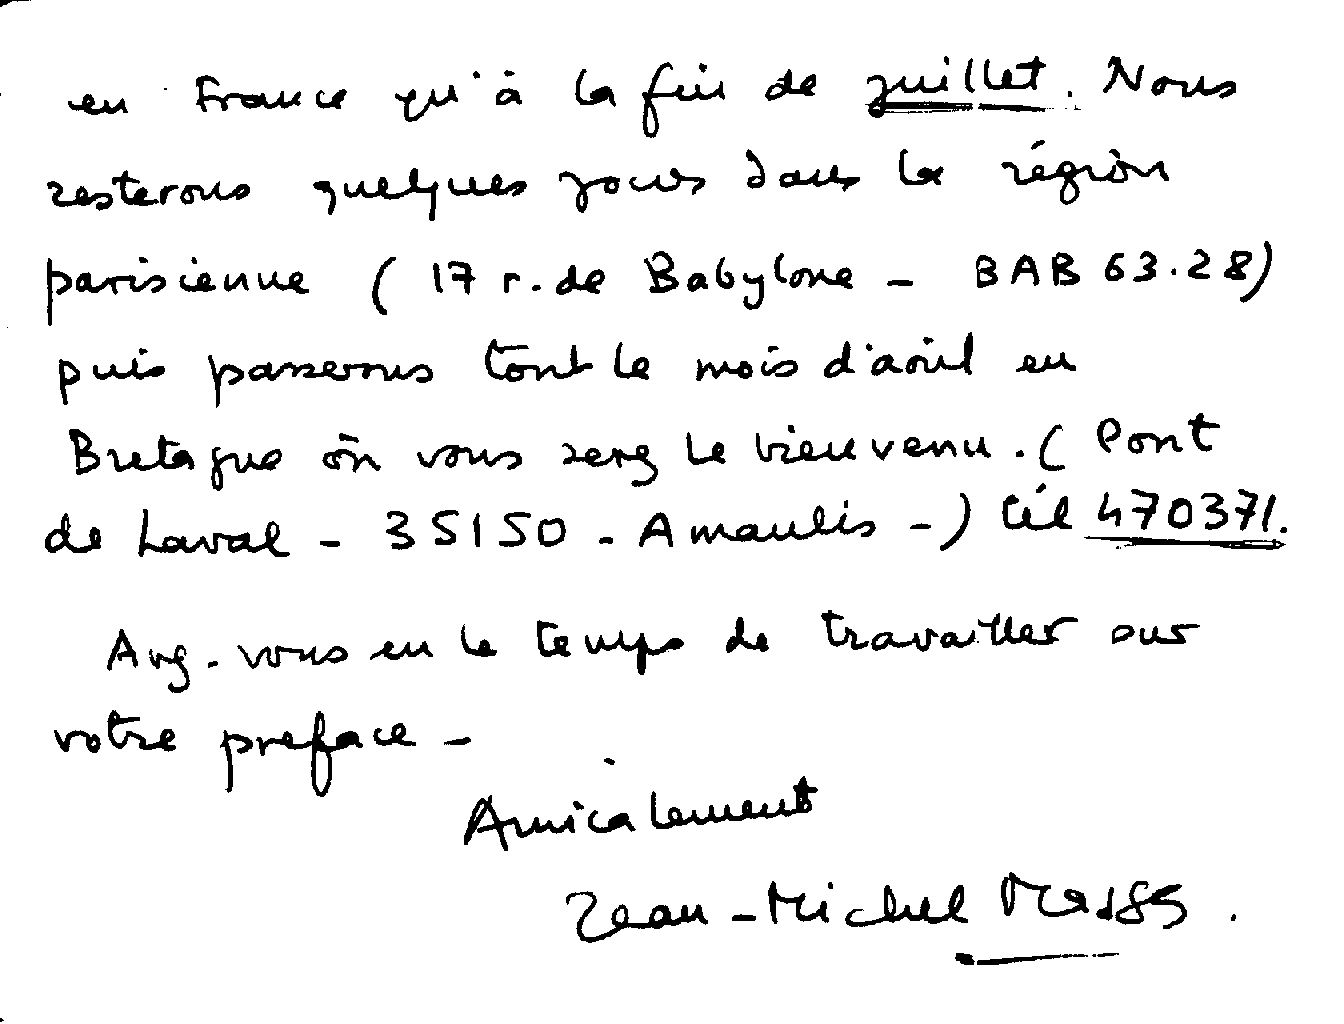 en France qu'à la fin de juillet. Nous
resterons quelques jours dans la région
parisienne ( 17 r. de Babylone - BAB 63.28)
puis passerons tout le mois d'août en
Bretagne où vous serez le bienvenu. ( Pont
de Laval - 35150 - Amanlis - ) tél 470371.
Avez-vous eu le temps de travailler sur
votre preface -
Amicalement
Jean-Michel